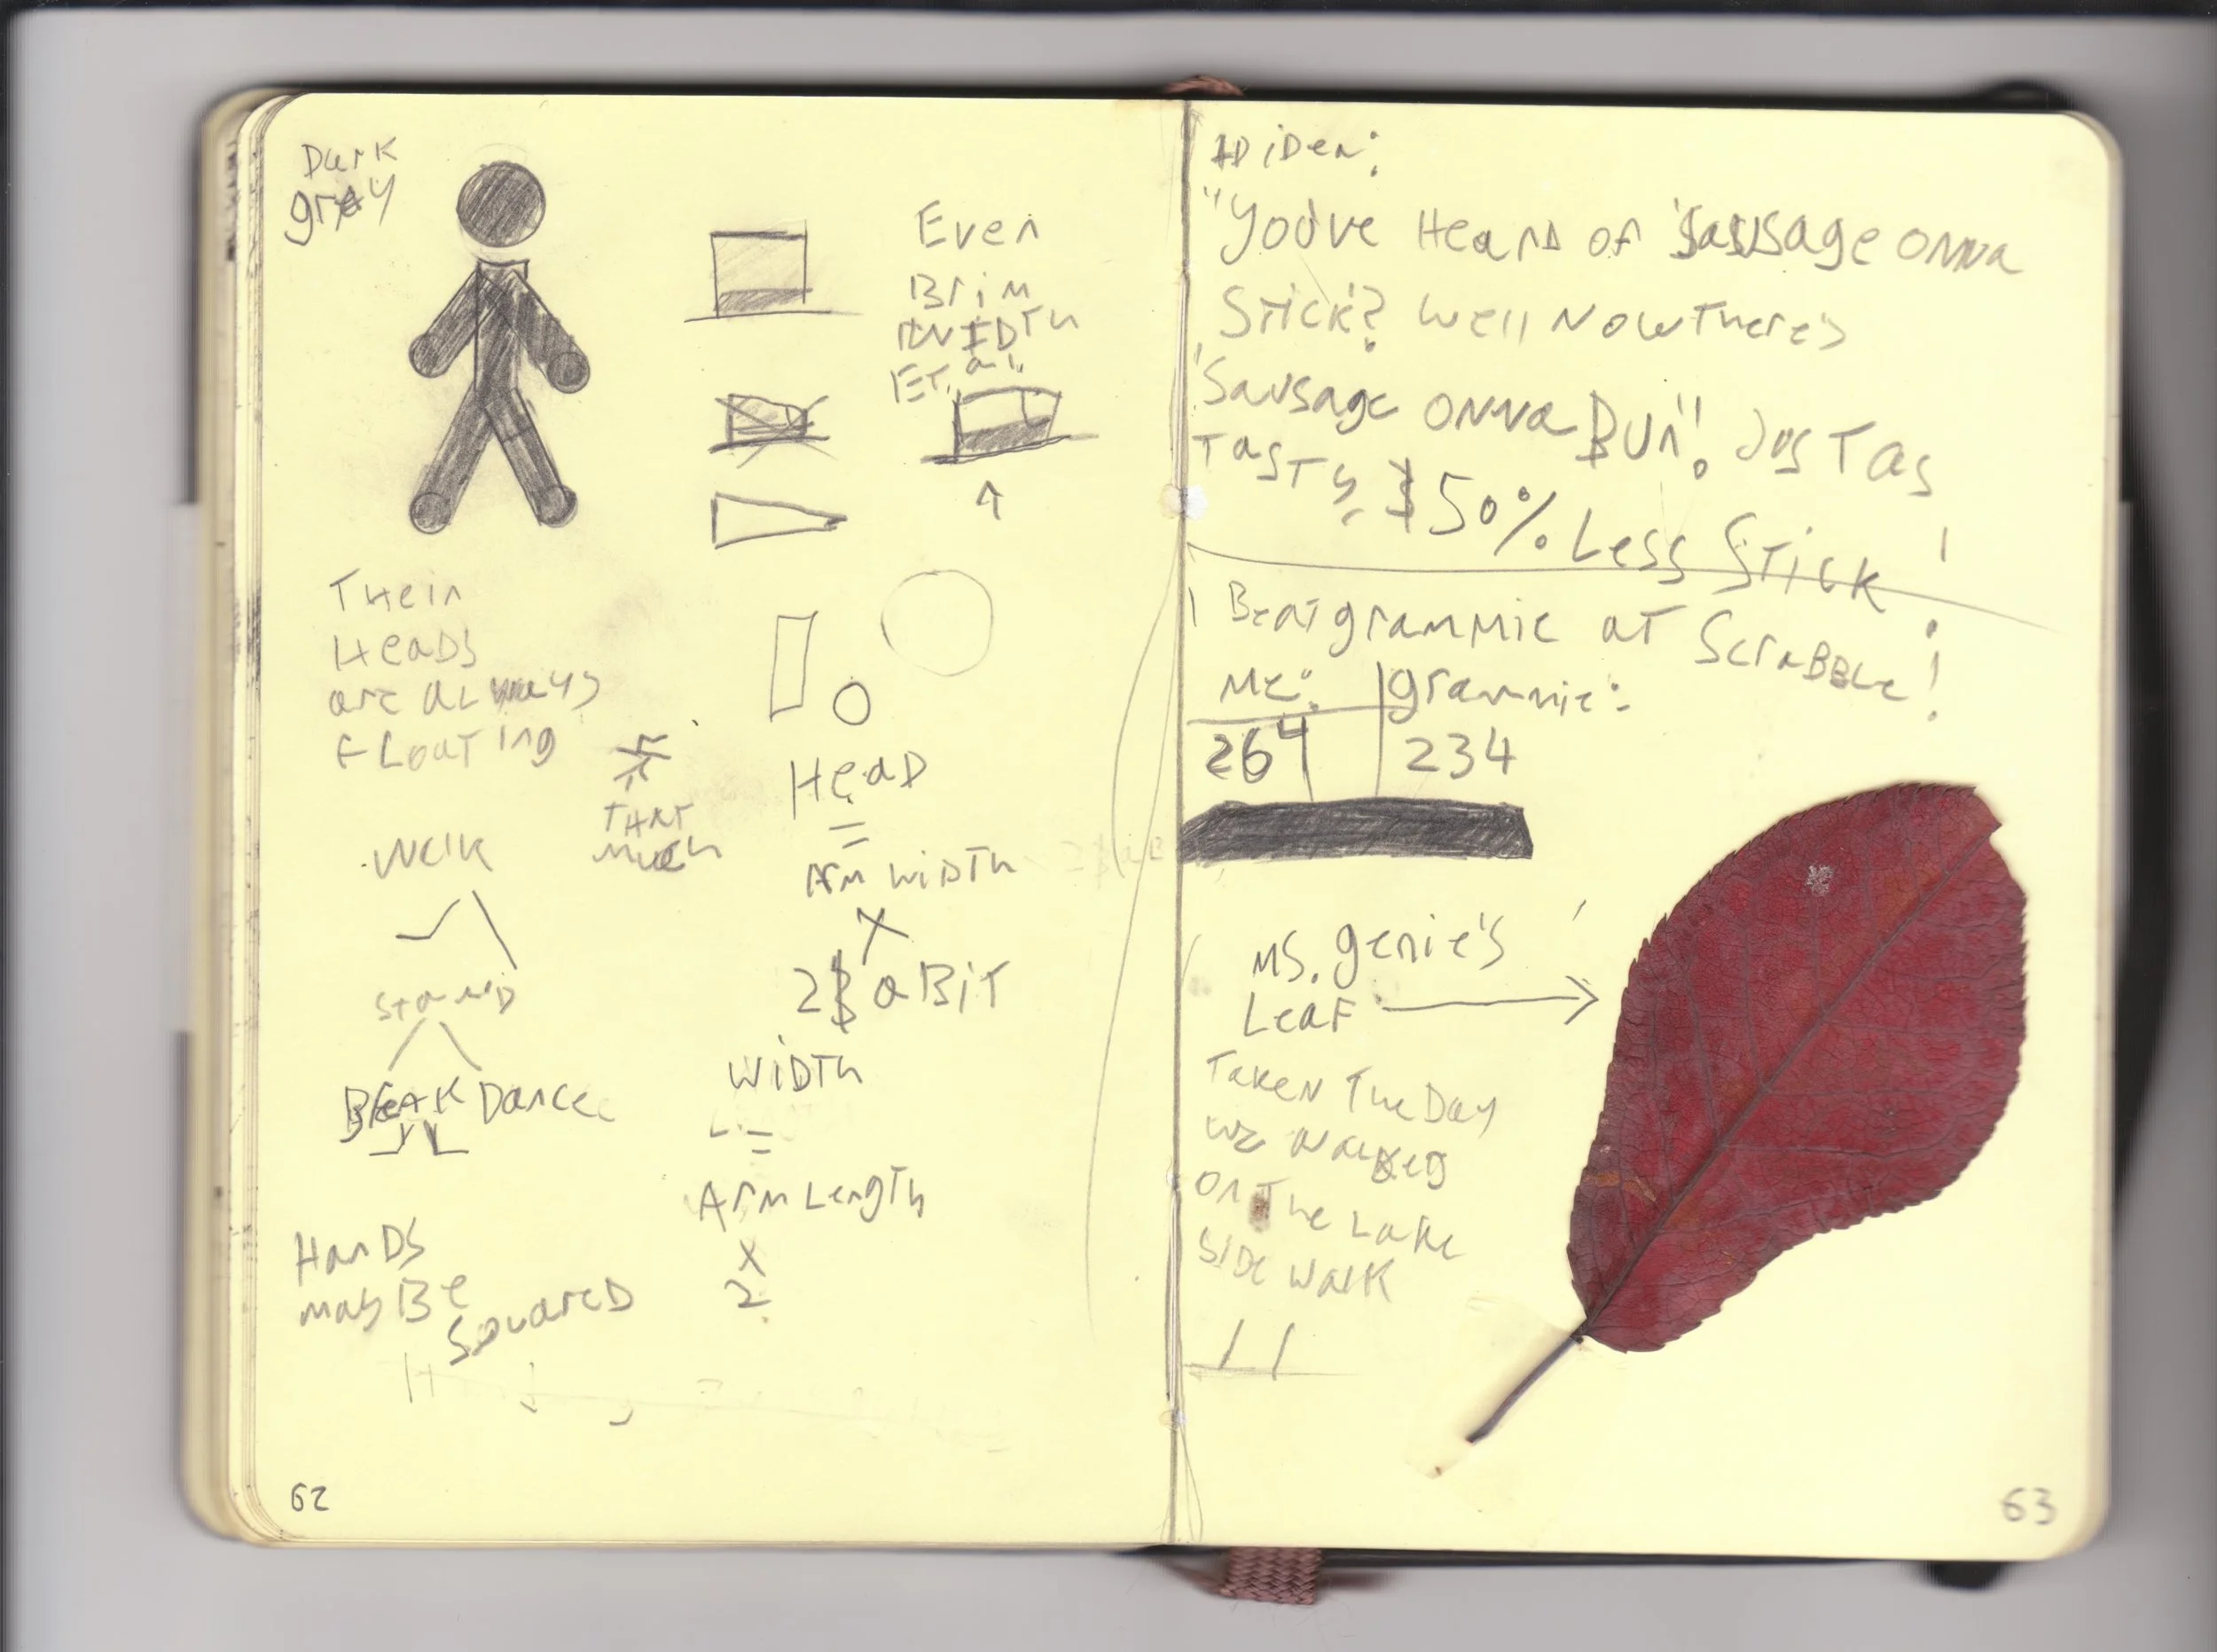 Dark
gray
Even
Brim
WIDTH
ET. al.
Their
HeaDS
are always
FLoating
THAT
Much
Walk
Stand
Break Dance
HanDS
may Be
SquareD
HeaD
=
Arm WiDTh
X
2 & a BiT
WiDTh
=
Arm Length
X
2
62
AD iDea:
"You've HearD of 'Sausage onna
Stick'? Well Now There's
'Sausage onna Bun'! Jus Tas
Tasty & 50% Less Stick!
I Beat grammie at ScraBBle!
Me: grammie:
264 234
Ms. genie's
Leaf
Taken The Day
we walked
on The Lake
SiDe walk
63